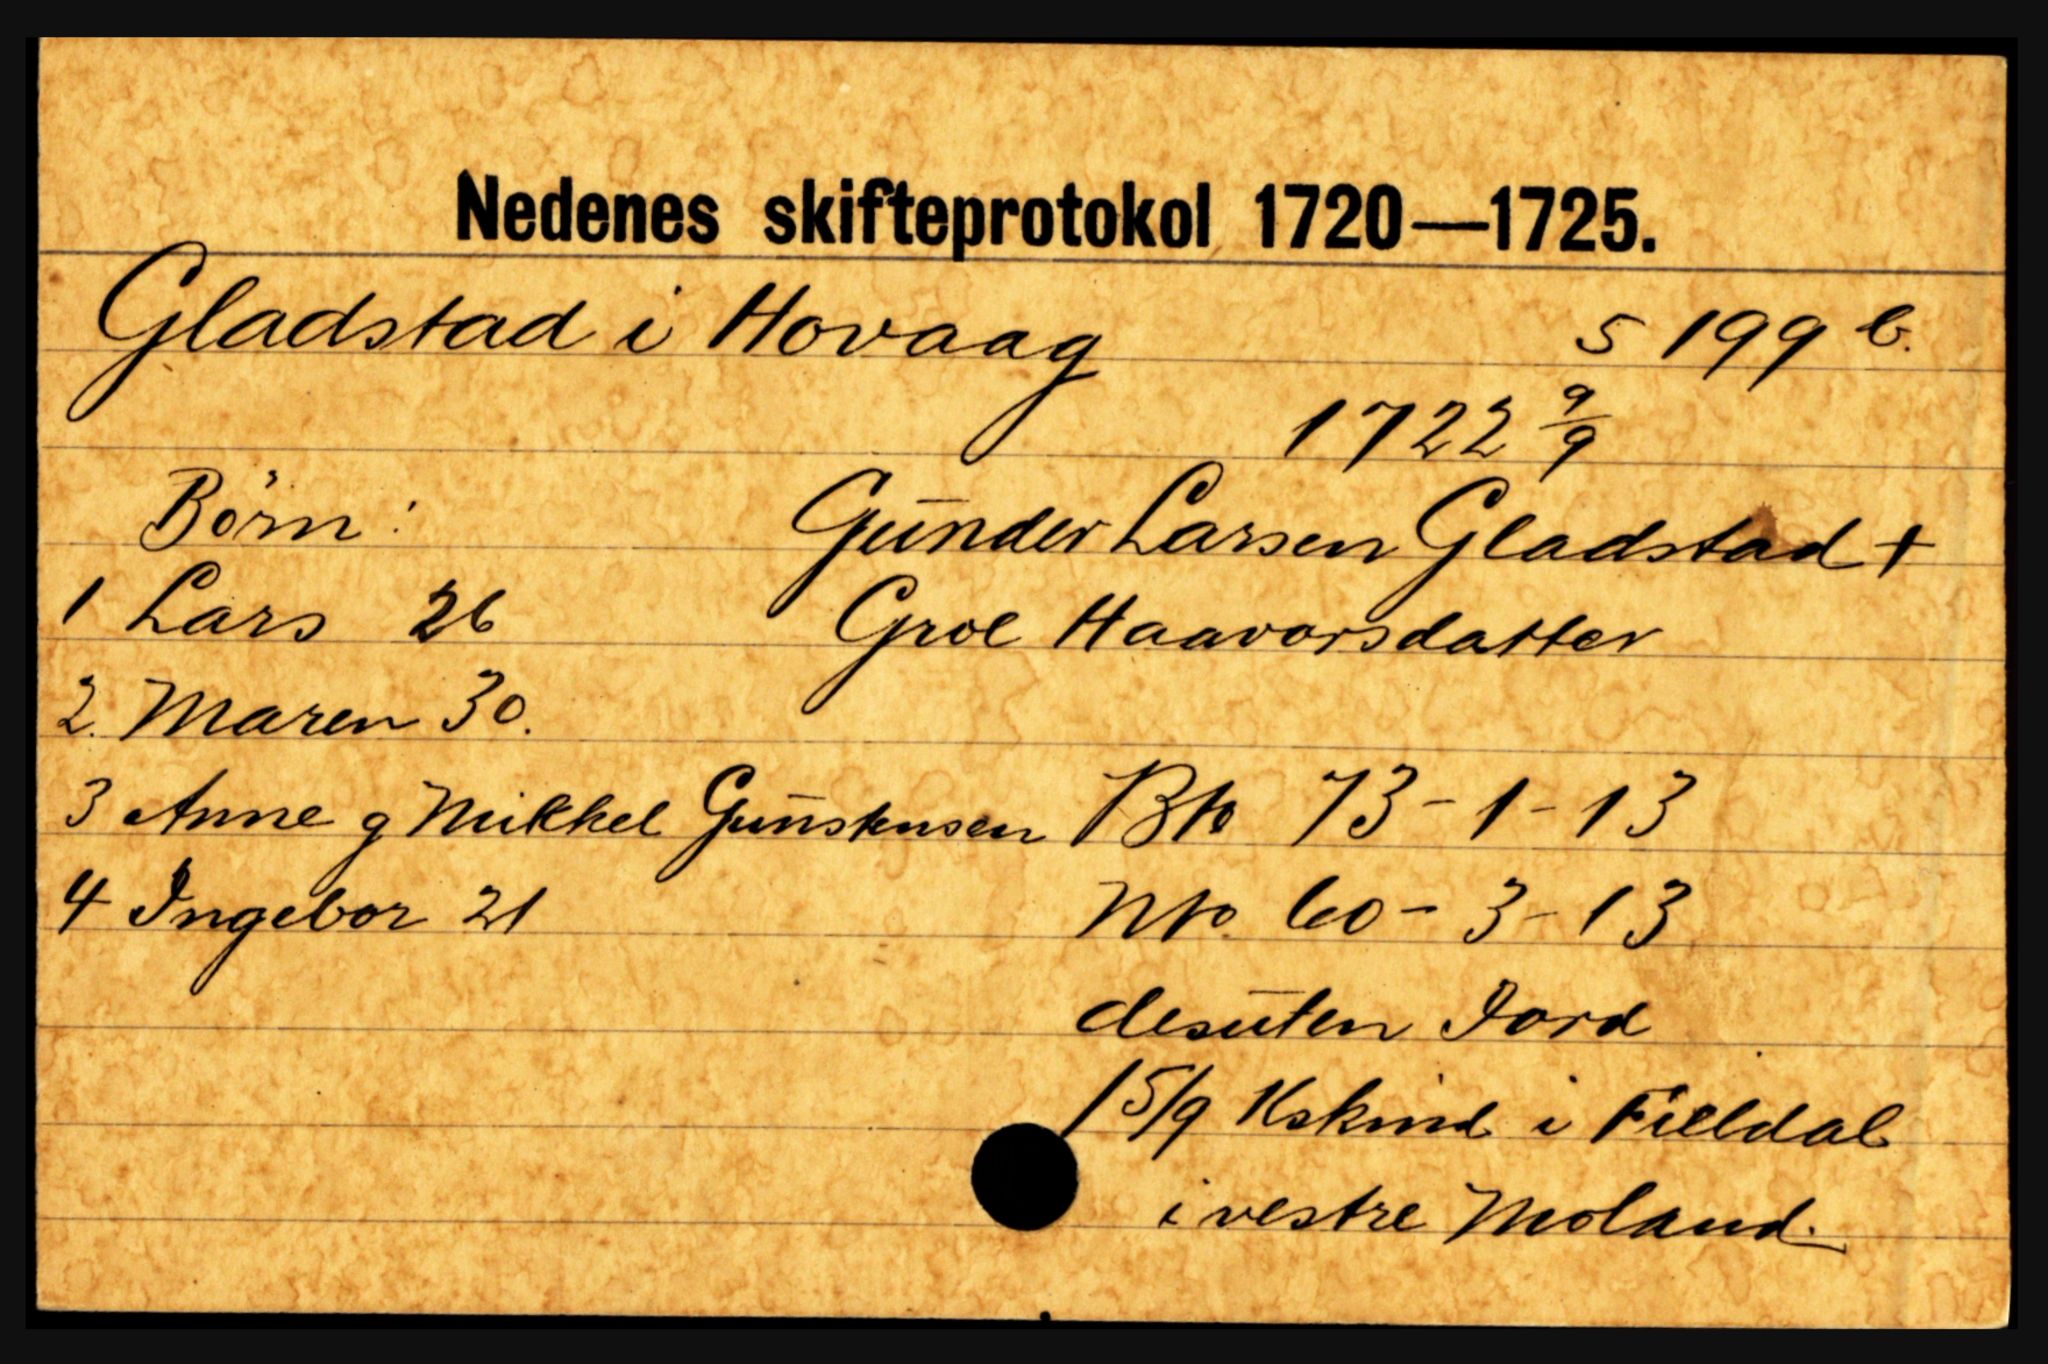 Nedenes skifteprotokol 1720—1725.
Gladstad i Hovaag s 199 b.
1722 9/9
Børn: Gunder Larsen Gladstad +
1 Lars 26 Groe Haavorsdatter
2. Maren 30.
3 Anne g Mikkel Gunstensen Bto 73-1-13
4 Ingebor 21 Nto. 60-3-13
desuten Jord
15/9 Kskind i Fieldal
i vestre Moland.